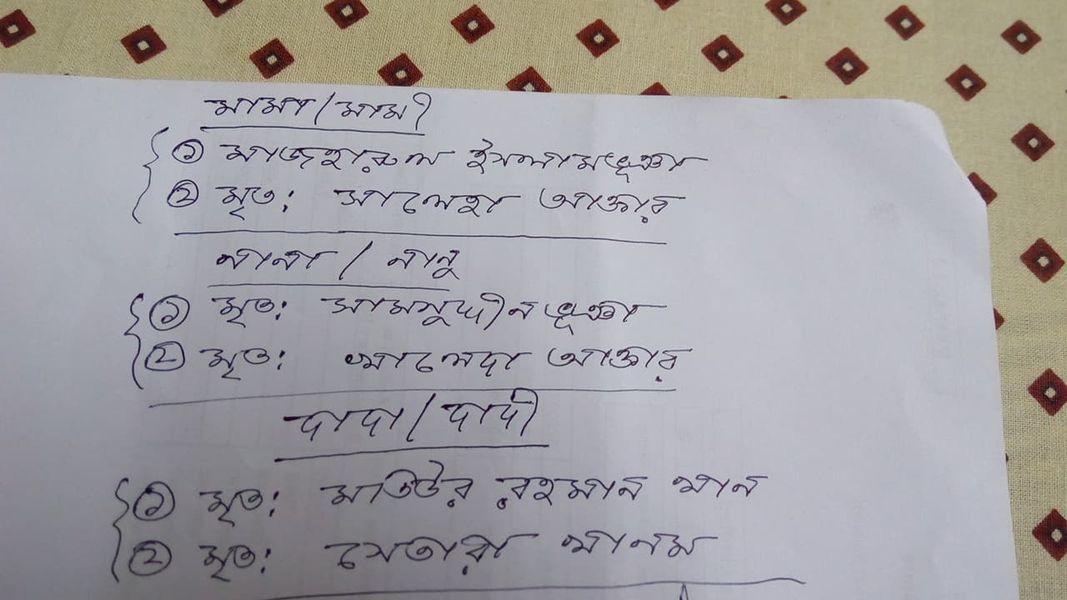 মামা / মামী
① মাজহারুল ইসলাম ভূঞা
② মৃত: সালেহা আক্তার
নানা / নানু
① মৃত: সামসুদ্দীন ভূঞা
② মৃত: খালেদা আক্তার
দাদা / দাদী
① মৃত: মতিউর রহমান খান
② মৃত: সেতারা খানম